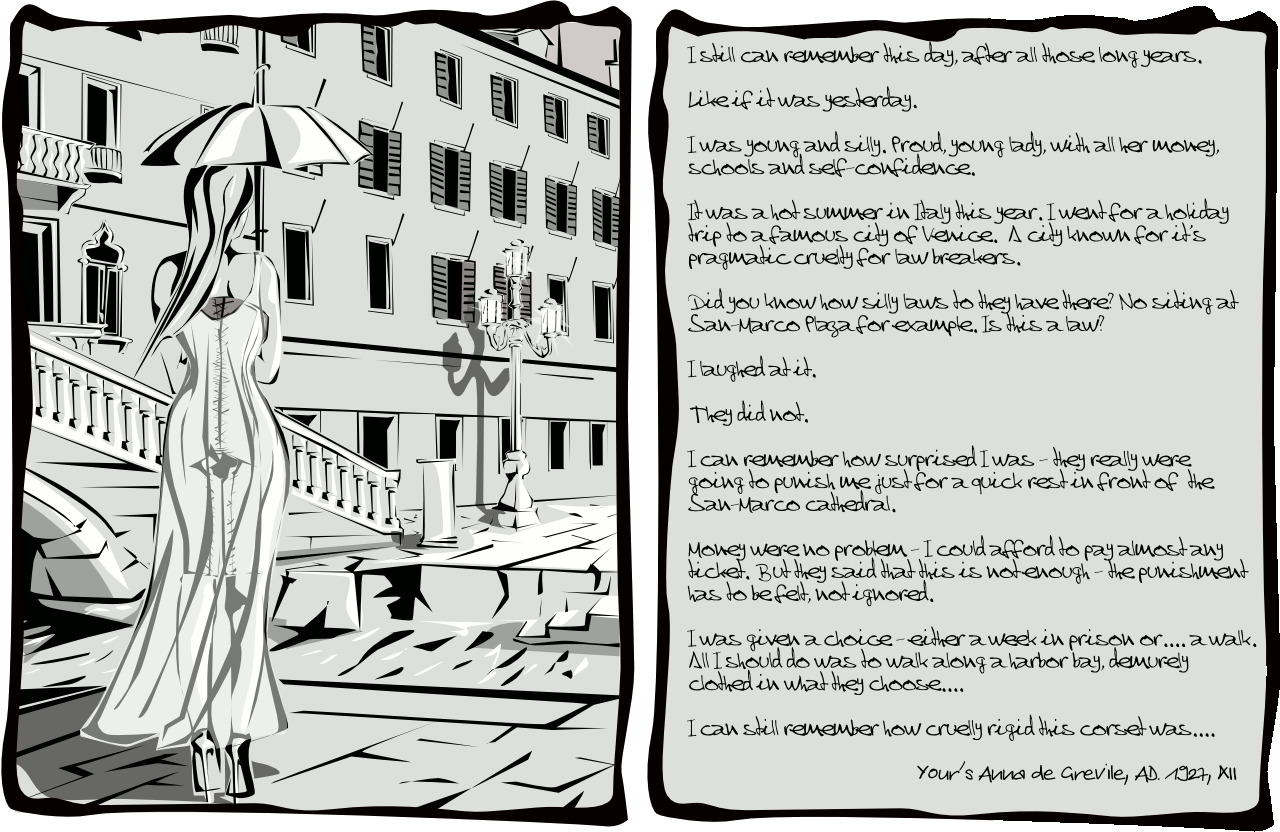 I still can remember this day, after all those long years.
Like if it was yesterday.
I was young and silly. Proud, young lady, with all her money,
schools and self-confidence.
It was a hot summer in Italy this year. I went for a holiday
trip to a famous city of Venice. A city known for it's
pragmatic cruelty for law breakers.
Did you know how silly laws to they have there? No siting at
San-Marco Plaza for example. Is this a law?
I laughed at it.
They did not.
I can remember how surprised I was - they really were
going to punish me just for a quick rest in front of the
San-Marco cathedral.
Money were no problem - I could afford to pay almost any
ticket. But they said that this is not enough - the punishment
has to be felt, not ignored.
I was given a choice - either a week in prison or.... a walk.
All I should do was to walk along a harbor bay, demurely
clothed in what they choose....
I can still remember how cruelly rigid this corset was....
Your's Anna de Grevile, AD. 1927, XII